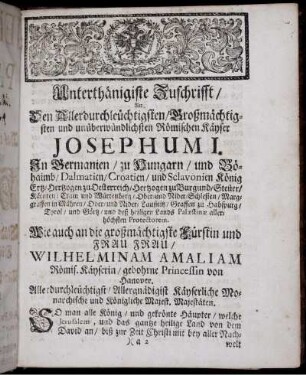 Unterthänigiste Zuschrifft /
An
Den Allerdurchleüchtigsten / Großmächtig-
sten und unüberwündlichsten Römischen Käyser
JOSEPHUM I.
In Germanien / zu Hungarn / und Bö-
haimb / Dalmatien / Croatien / und Sclavonien König
Ertz-Hertzogen zu Oesterreich / Hertzogen zu Burgund / Steüer /
Kärnten / Crain und Würtenberg / Ober und Nider-Schlesien / Marg-
graffen in Mähren / Ober und Nider-Lausitz / Graffen zu Habspurg /
Tyrol / und Görtz / und deß heiligen Lands Palæstinæ aller
höchsten Protectorem.
Wie auch an die großmächtigste Fürstin und
FRAU FRAU /
WILHELMINAM AMALIAM
Römis. Käyserin / gebohrne Princessin von
Hanover.
Aller-durchleüchtigst / Allergnädigist Käyserliche Mo-
narchische und Königliche Majest. Majestäten.
SO man alle König / und gekrönte Häupter / welche
Jerusalem, und das gantze heilige Land von dem
David an / biß zur Zeit Christi mit bey aller Nach-
welt